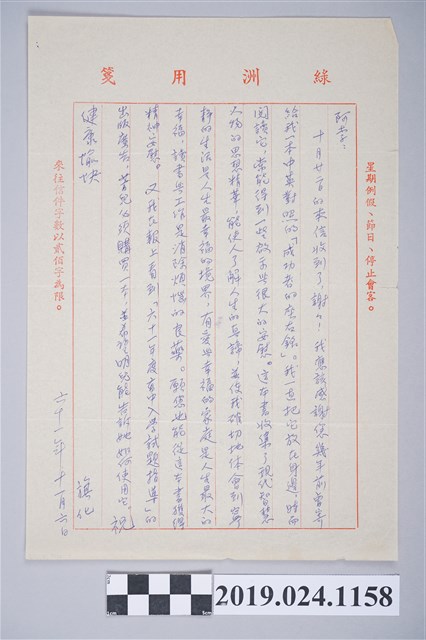 綠洲用箋
星期例假、節日、停止會客。
阿李：
十月廿一日的來信收到了，謝々！我應該感謝您幾年前曾寄
給我一本中英對照的「成功者的座右銘」。我一直把它放在身邊，時而
閱讀它，常能得到一些啟示與很大的安慰。這本書收集了現代智慧
人物的思想精華，能使人了解人生的真諦，並使我確切地體會到寧
靜的生活是人生最幸福的境界，有愛與幸福的家庭是人生最大的
幸福，讀書與工作是消除煩惱的良藥。願您也能從這本書獲得
精神安慰。 又我在報上看到「六十一年度高中入學試題指導」的
出版廣告，若兒必須購買一本，並希你明的能告訴她如何使用它。祝
健康愉快
鎮化
六十一年十一月六日
來往信件字數以貳佰字為限。
2019.024.1158